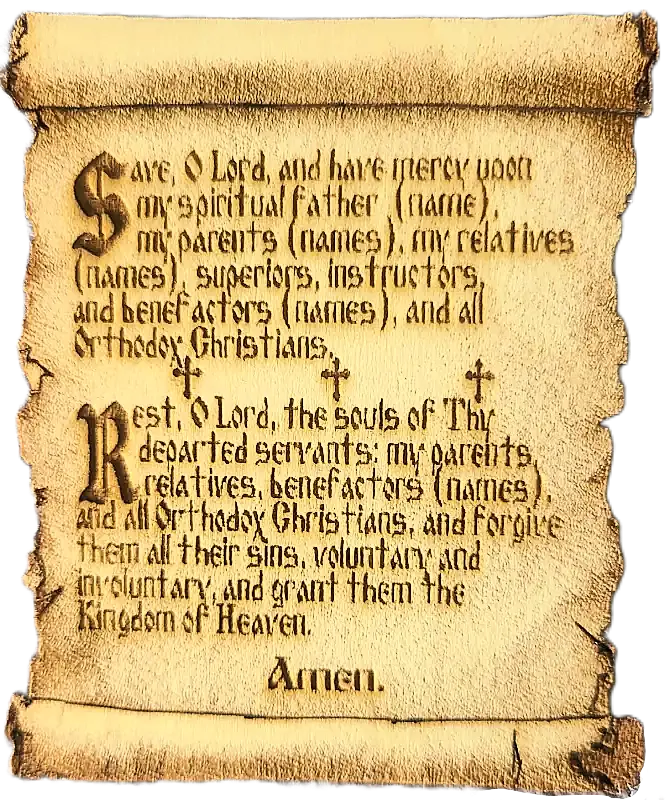 Save, O Lord, and have mercy upon
my spiritual father (name),
my parents (names), my relatives
(names), superiors, instructors,
and benefactors (names), and all
Orthodox Christians.
Rest, O Lord, the souls of Thy
departed servants: my parents,
relatives, benefactors (names),
and all Orthodox Christians, and forgive
them all their sins, voluntary and
involuntary, and grant them the
Kingdom of Heaven.
Amen.